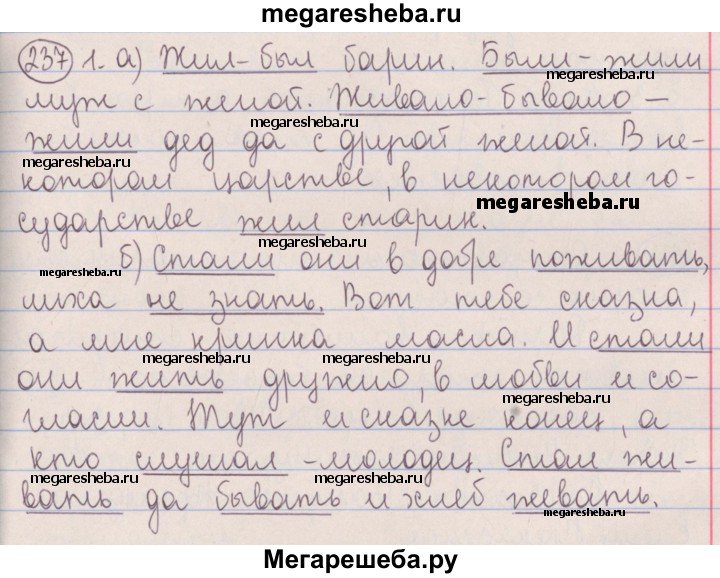 megaresheba.ru
237 1. а) Жил-был барин. Были-жили
megaresheba.ru
муж с женой. Живало-бывало –
megaresheba.ru
жили дед да с другой женой. В не-
megaresheba.ru
котором царстве, в некотором го-
megaresheba.ru
сударстве жил старик.
megaresheba.ru
б) Стали они в добре поживать,
megaresheba.ru
megaresheba.ru
лиха не знать. Вот тебе сказка,
а мне кринка масла. И стали
megaresheba.ru
megaresheba.ru
они жить дружно, в любви и со-
гласии. Тут и сказке конец, а
кто слушал – молодец. Стал жи-
megaresheba.ru
megaresheba.ru
вать да бывать и хлеб жевать.
megaresheba.ru
Мегарешеба.ру